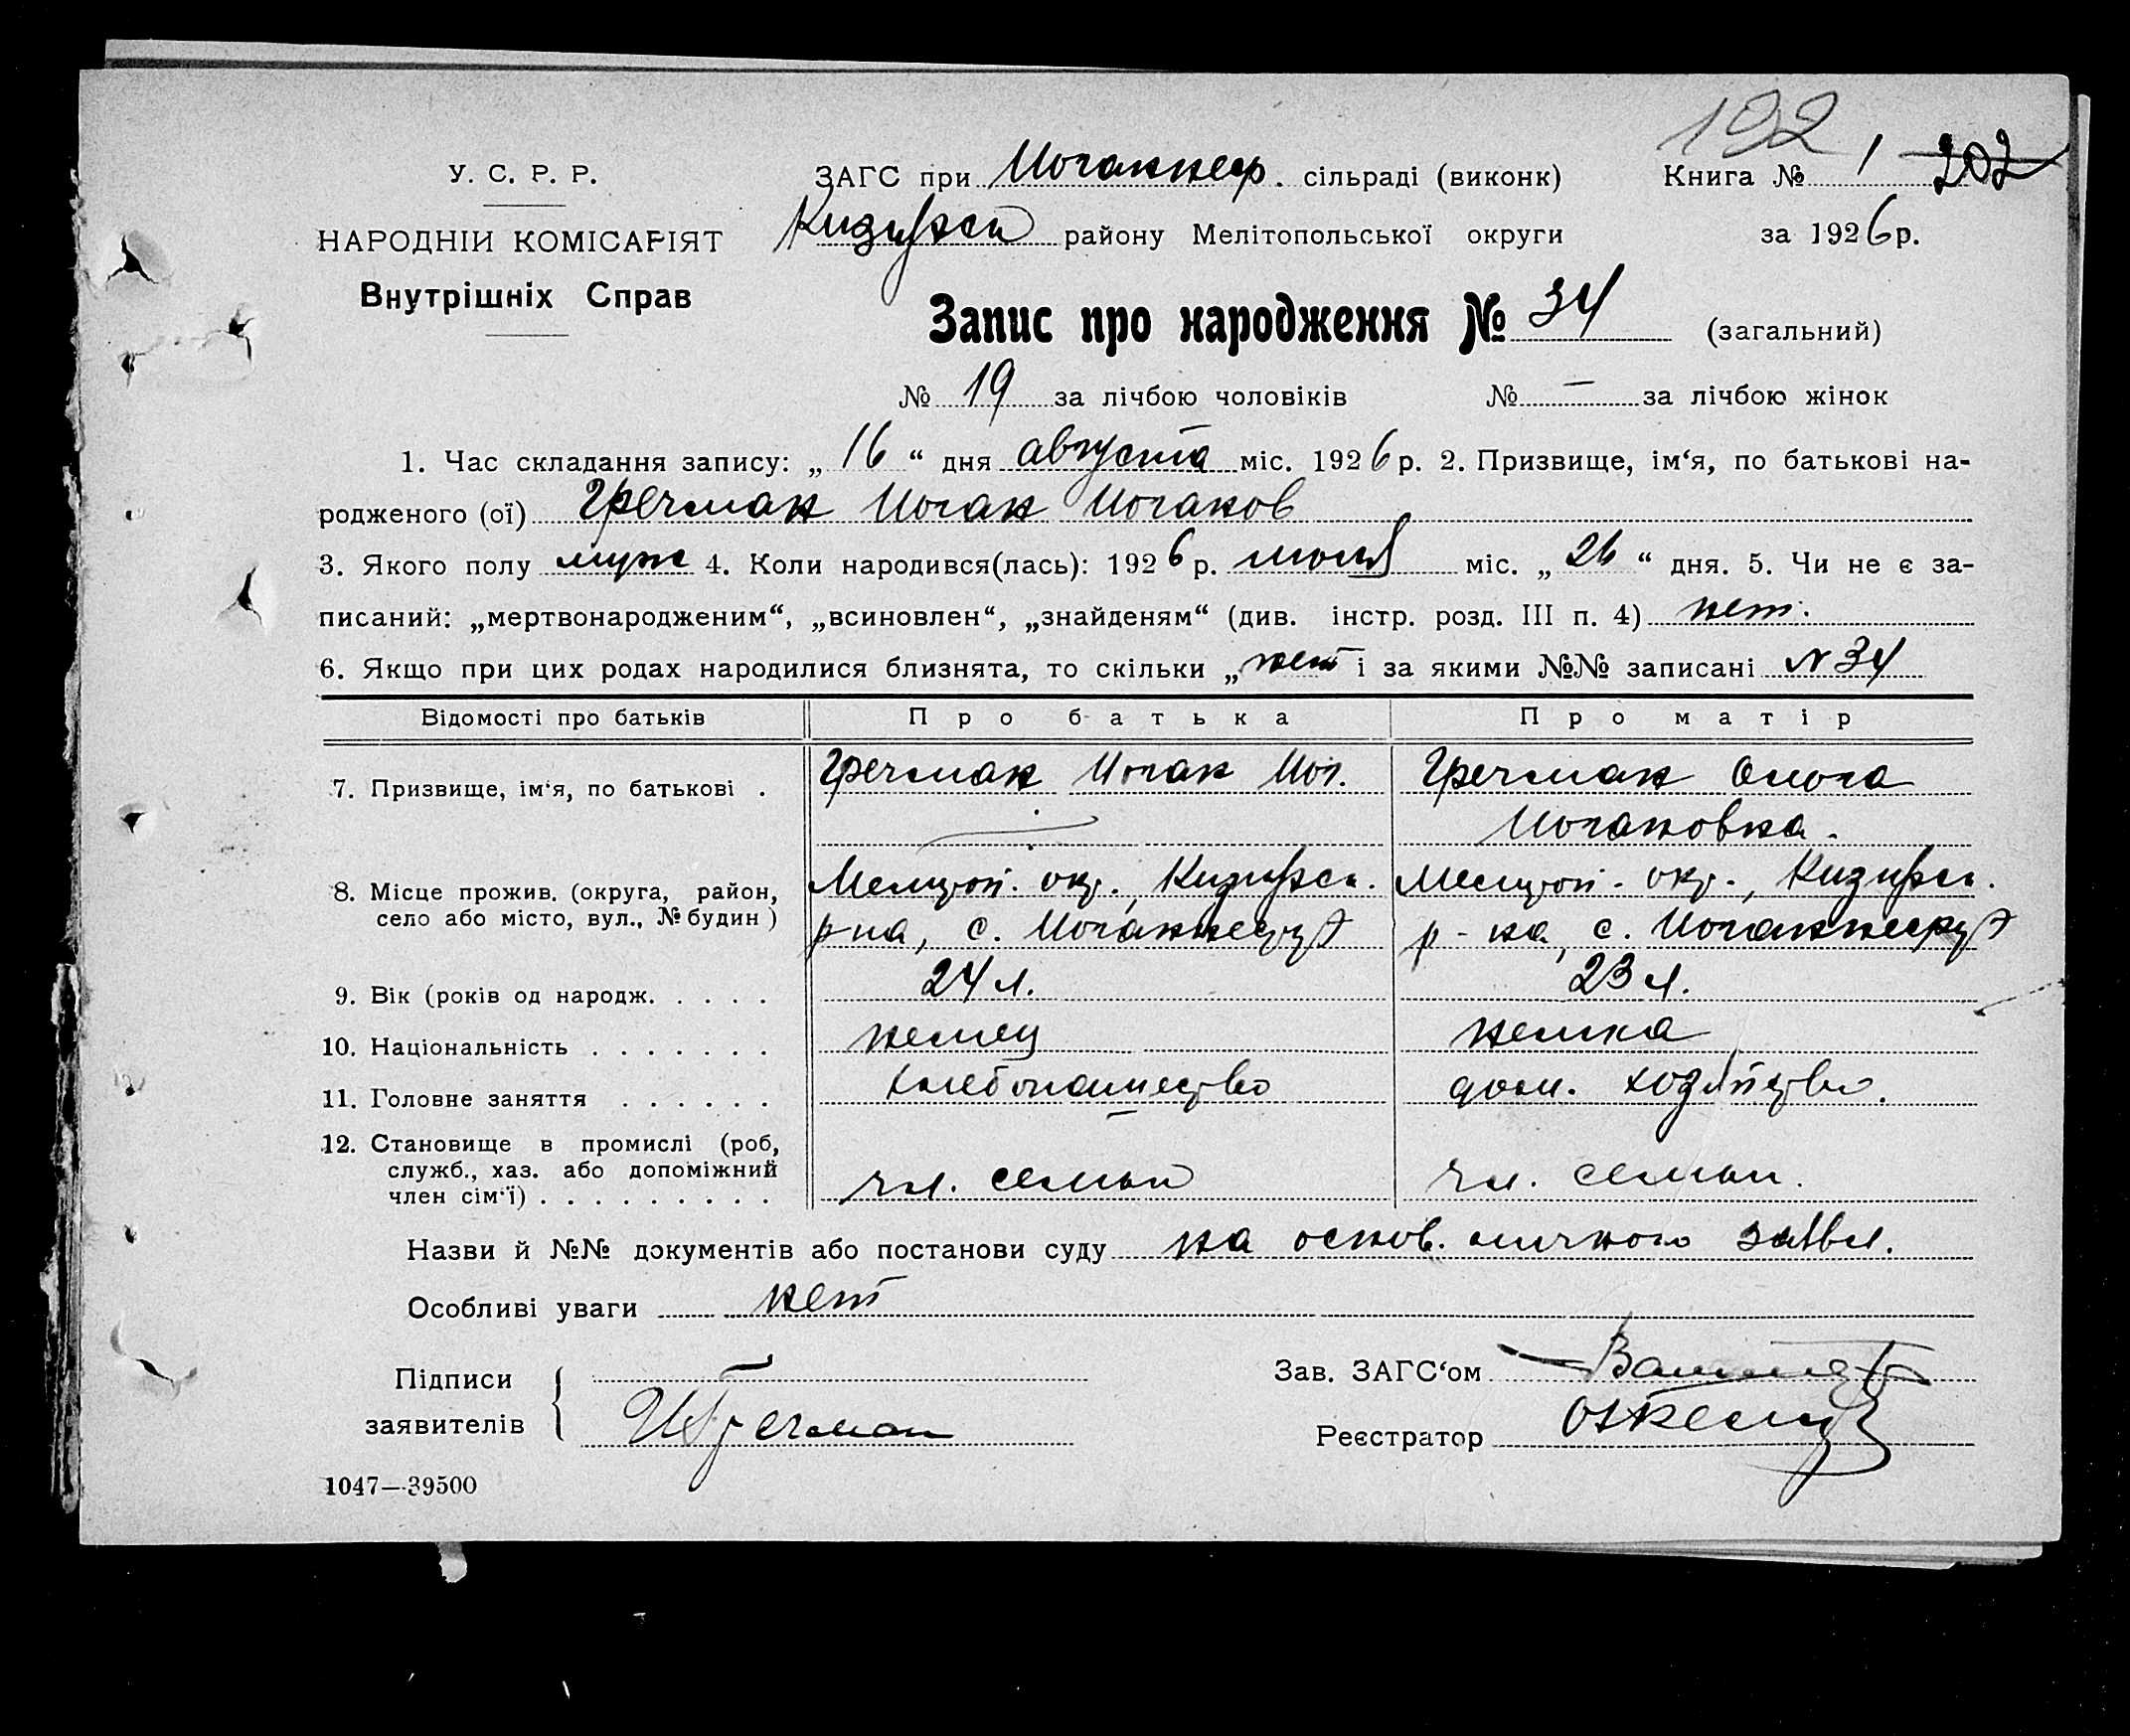 192
У. С. Р. Р.
НАРОДНІЙ КОМІСАРІЯТ
Внутрішніх Справ
ЗАГС при Иоганнеср. сільраді (виконк)
Книга № 1 202
району Мелітопольської округи
за 1926 р.
Запис про народження № 34 (загальний)
№ 19 за лічбою чоловіків № — за лічбою жінок
1. Час складання запису: „ 16 “ дня августа міс. 1926 р. 2. Призвище, ім‘я, по батькові на-
родженого (ої) Гречман Иоган Иоганов
3. Якого полу муж 4. Коли народився(лась): 1926 р. июля міс. „ 26 “ дня. 5. Чи не є за-
писаний: „мертвонародженим“, „всиновлен“, „знайденям“ (див. інстр. розд. III п. 4) нет.
6. Якщо при цих родах народилися близнята, то скільки „ нет і за якими №№ записані N 34
Відомості про батьків Про батька Про матір
7. Призвище, ім‘я, по батькові . Гречман Иоган Иог. Гречман
Иогановна.
8. Місце прожив. (округа, район, Мелитоп. окр., Мелитоп. окр.,
село або місто, вул., № будин ) р-на, с. Иоганнесру р-на, с. Иоганнесру
9. Вік (років од народж. . . . . 24 л. 23 л.
10. Національність . . . . . . . немец немка
11. Головне заняття . . . . . . хлебопашество дом. хозяйство.
12. Становище в промислі (роб,
служб., хаз. або допоміжний
член сім‘ї) . . . . . . . . . чл. семьи чл. семьи.
Назви й №№ документів або постанови суду на основ. личного заявл.
Особливі уваги нет
Підписи
заявителів
И Гречман
Зав. ЗАГС‘ом
Реєстратор
1047—39500